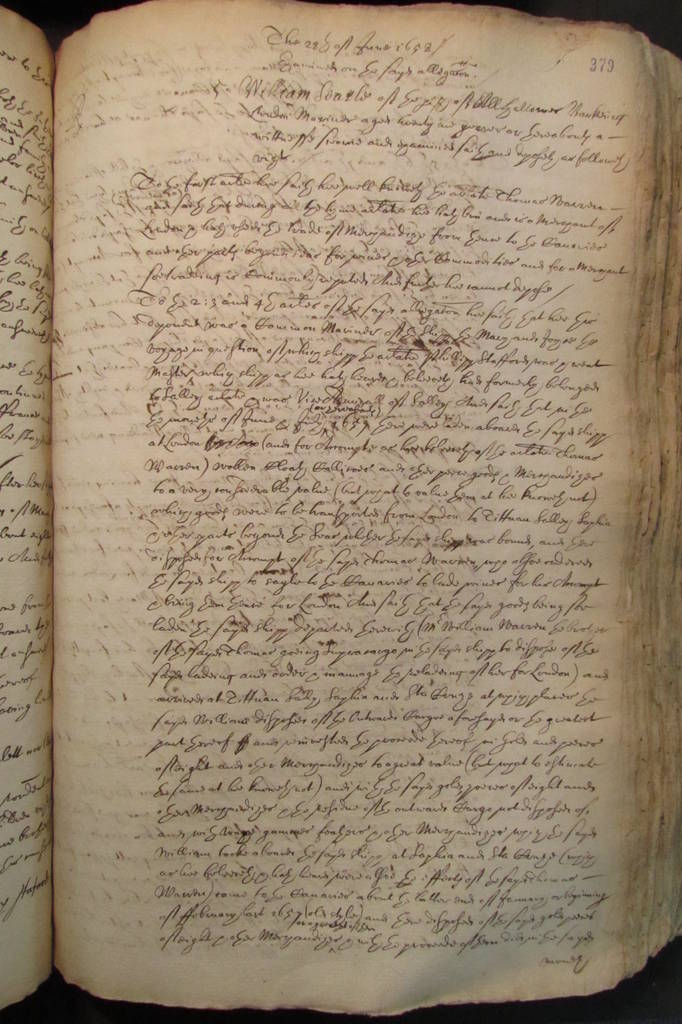 The 28th of June 1658
379
Examined on the sayd allegation.
5. William of the of All hallowes Barking
London Mariner aged twenty yeeres or thereabouts a
wittnesse sworne and examined saith and deposeth as followeth
vizt.
To the first article hee saith hee well knoweth the arlate Thomas Warren
and saith that during all the tyme arlate hee hath bin and is a Merchant of
London and hath used the trade of Merchandizing from hence to the Canaries
and other parts beyond seas for wines and other Commodities and for a Merchant
soe trading is Commonly reputed And further hee cannot depose
To the 2: 3 and 4th articles of the sayd allegation hee saith that hee this
deponent was a Common Mariner of the shipp the Mary and Joyce the
voyage in question of which shipp the arlate Phillipp Stafford was and went
Master, which shipp as hee hath heard and beleeveth had formerly belonged
to Salley arlate and was Vice Admirall of Salley And saith that in the
moneths of June and July 1657 there were laden aboard the sayd shipp
at London (and for Accompt as hee beleeveth of the arlate Thomas
Warren) wollen Cloath, Callicoes and other peece goods and Merchandizes
to a very considerable value (but what to value them at hee knoweth not)
which goods were to be transported from London to Tittuan Salley, Saphia
and other parts beyond the Seas whither the sayd shipp was bound, and there
disposed for Accompt of the sayd Thomas Warren, who alsoe ordered
the sayd shipp to sayle to the Canaries to lade wines for his Accompt
and bring them hence for London And saith that the sayd goods being soe
laden the sayd shipp departed therewith (Mr William Warren the brother
of the sayd Thomas going Supracargo in the sayd shipp to dispose of the
sayd lading and order and manage the relading of her for London) and
arrived at Tittuan Sally Saphia and Sta Cruze at which places the
sayd William disposed of the Outward Cargoe aforesayd or the greatest
part thereof and invested the proceede thereof in gold and peeces
of eight and other Merchandizes to a great value (but what to estimate
the same at hee knoweth not) and with the sayd gold peeces of eight and
other Merchandizes and the residue of the outward Cargo not disposed of,
and with feathers and other Merchandizes which the sayd
William tooke aboard the sayd shipp at Saphia and Sta Cruze (which
as hee beleeveth and hath heard were alsoe the effects of the sayd Thomas
Warren) came to the Canaries about the latter end of January or beginning
of ffebruary last 1657 (old stile) and there disposed of the sayd gold peeces
of eight and other Merchandizes and with the proceede of them did in the sayd
moneth